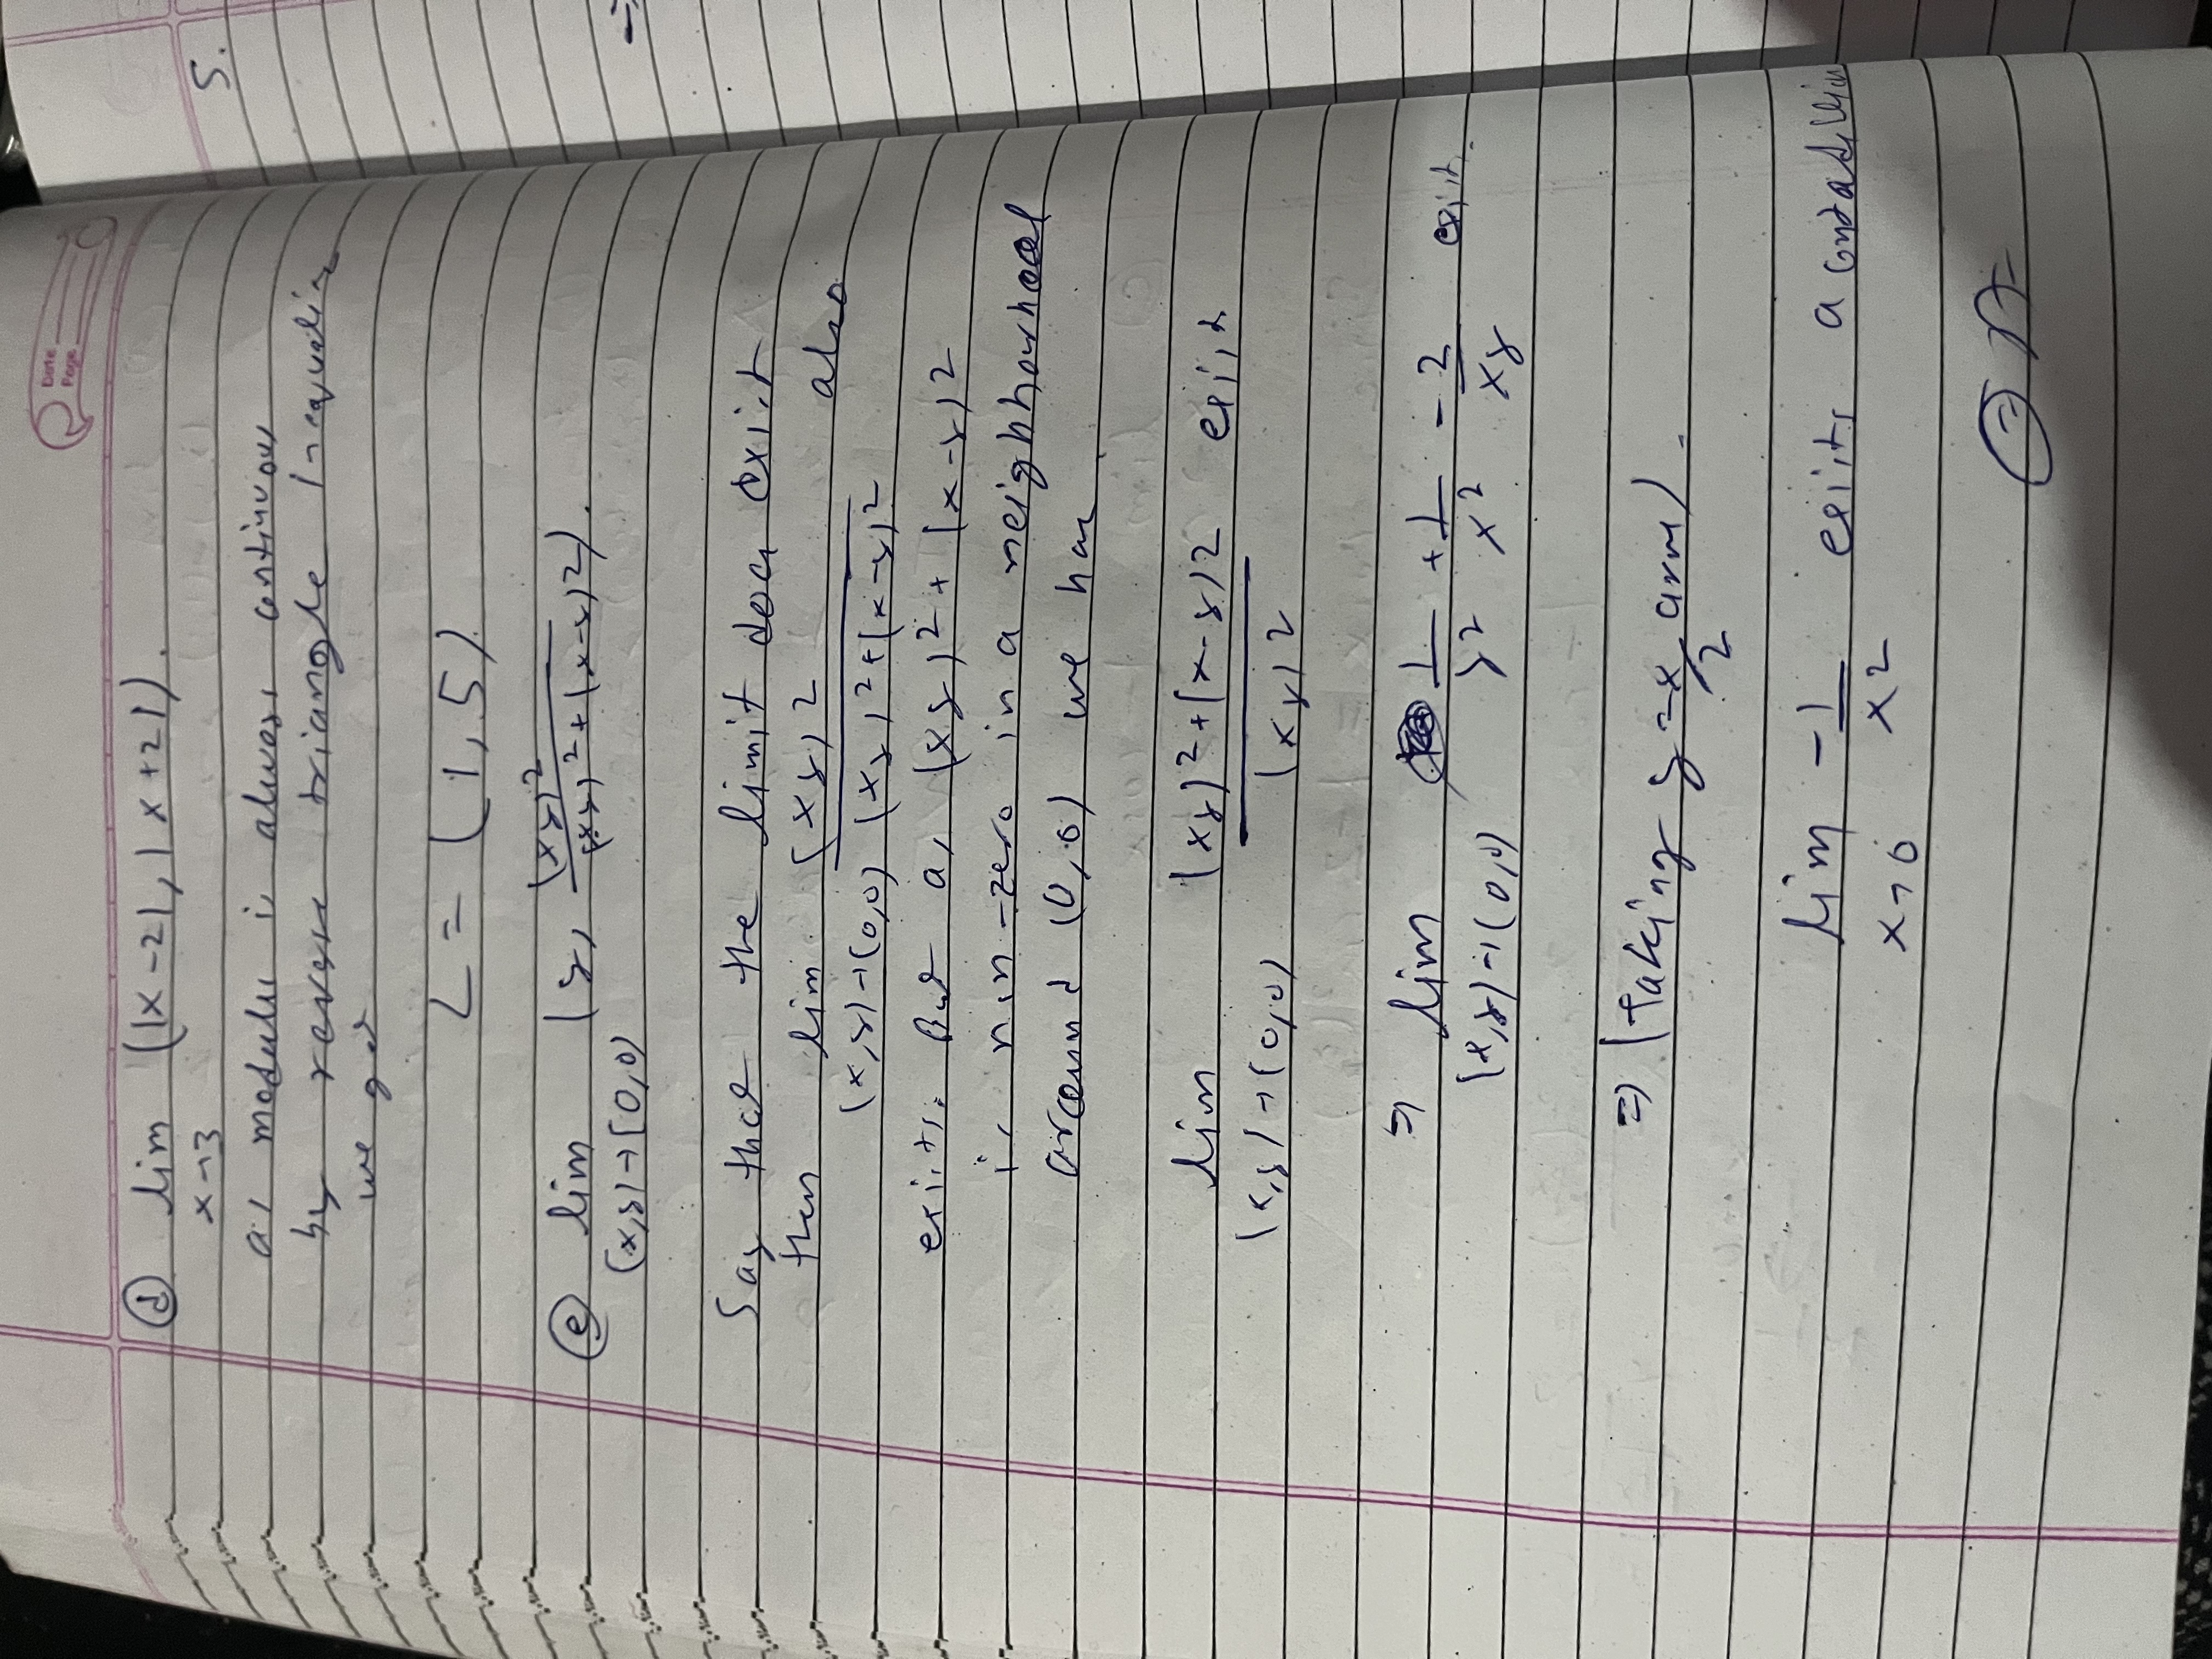 Date
Page
(d) lim (|x-2|, |x+2|).
x→3
as modulus is always continuous
by reverse triangle Inequality
we get
L = (1, 5)
5.
(e) lim (y, (xy)²/((xy)²+(x-y)²)).
(x,y)→(0,0)
⇒
Say that the limit does exist
then lim (xy)²/((xy)²+(x-y)²) also
(x,y)→(0,0)
exists. But as (xy)²+(x-y)²
is non-zero in a neighbourhood
around (0,0) we has
lim ((xy)²+(x-y)²)/(xy)² exist
(x,y)→(0,0)
⇒ lim 1/y² + 1/x² - 2/xy exist.
(x,y)→(0,0)
⇒ (taking y=x/2 arm).
lim -1/x² exists a contradiction
x→0